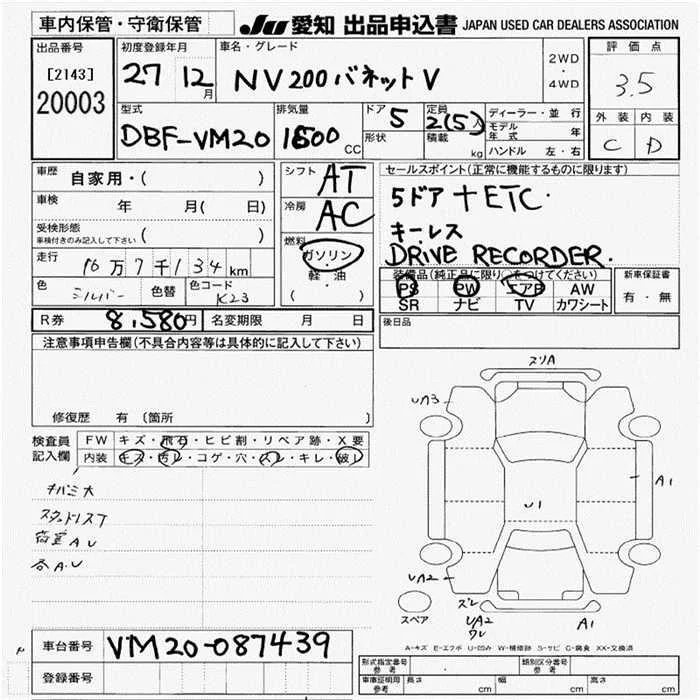 車内保管・守衛保管
JU 愛知 出品申込書 JAPAN USED CAR DEALERS ASSOCIATION
出品番号
[2143]
20003
初度登録年月
27 12月
車名・グレード
NV200バネットV
2WD
・
4WD
評価点
3.5
外装 内装
C D
型式
DBF-VM20
排気量
1600 CC
ドア 5
形状
定員 2(5)人
積載 kg
ディーラー・並行
モデル年式 年
ハンドル 左・右
車歴 自家用・( )
車検 年 月( 日)
受検形態
車検付きのみ記入して下さい ( )
走行 10万7千134km
色 シルバー 色替 色コード K23
シフト AT
冷房 AC
燃料
ガソリン
・
軽油
( )
セールスポイント(正常に機能するものに限ります)
5ドア+ETC.
キーレス
DRIVE RECORDER.
装備品(純正品に限り○をつけてください)
PS PW エアB AW
SR ナビ TV カワシート
新車保証書
有・無
R券 8,580円 名変期限 月 日
後日品
注意事項申告欄(不具合内容等は具体的に記入して下さい)
修復歴 有 〔箇所 〕
検査員
記入欄
FW キズ・飛石・ヒビ割・リペア跡・X要
内装 キズ・汚レ・コゲ・穴・スレ・キレ・破レ
キバミ大
スタッドレスT
荷室A.U
各A.U
スリA
UA3
A1
U1
UA2
スレ
UA2
ワレ
A1
スペア
A-キズ E-エクボ U-凹み W-補修跡 S-サビ C-腐食 XX-交換済
車台番号 VM20-087439
登録番号
形式指定番号 参考
類別区分番号 参考
車庫証明用 参考 長さ cm 幅 cm 高さ cm